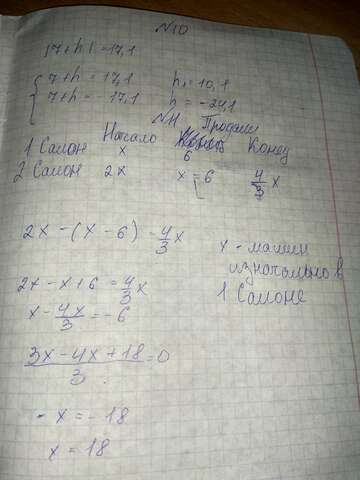 N10
|7+h|=17,1
7+h=17,1 h=10,1
7+h=-17,1 h=-24,1
N11
Начало Продали Конец
1 Салон x 6
2 Салон 2x x-6 4/3 x
2x-(x-6)=4/3 x
x - машин
изначально в
1 Салоне
2x-x+6=4/3 x
x-4x/3=-6
3x-4x+18/3=0
-x=-18
x=18